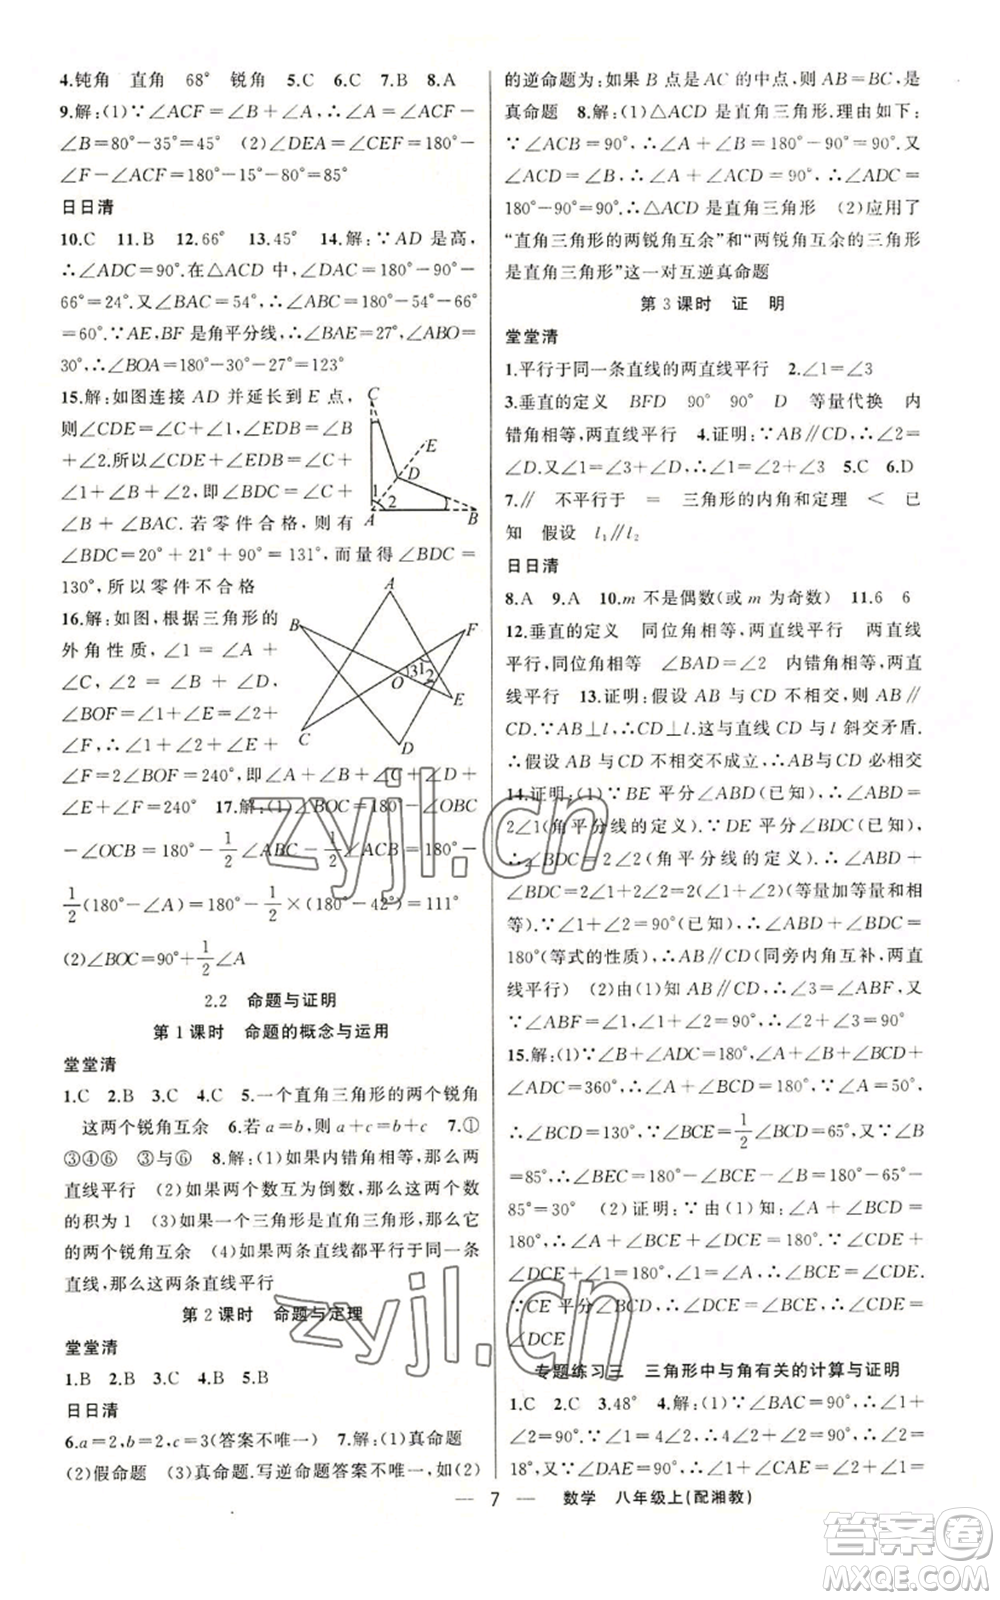 4.钝角　直角　68°　锐角　5.C　6.C　7.B　8.A
9.解:(1)∵∠ACF=∠B+∠A,∴∠ACF-
∠B=80°-35°=45°　(2)∠DEA=∠CEF=180°-
∠F-∠ACF=180°-15°-80°=85°
日日清
10.C　11.B　12.66°　13.45°　14.解:∵AD 是高,
∴∠ADC=90°.在△ACD 中,∠DAC=180°-90°-
66°=24°.又∠BAC=54°,∴∠ABC=180°-54°-66°
=60°.∵AE,BF 是角平分线,∴∠BAE=27°,∠ABF=
30°,∴∠BOA=180°-30°-27°=123°
15.解:如图连接 AD 并延长到 E 点,
则∠CDE=∠C+∠1,∠EDB=∠B
+∠2.所以∠CDE+∠EDB=∠C+
∠1+∠2+∠B,即∠BDC=∠C+
∠B+∠BAC.若零件合格,则有
∠BDC=20°+21°+90°=131°,而量得∠BDC=
130°,所以零件不合格
C
E
D
1
2
A
B
16.解:如图,根据三角形的
外角性质,∠1=∠A+
∠C,∠2=∠B+∠D.∵
∠BOF=∠1+∠E=∠2+
∠F=120°,∴∠1+∠E+
∠2+∠BOF=240°,即∠A+∠B+∠C+∠D+
∠E+∠F=240°　17.解:(1)∠BOC=180°-∠OBC
A
B
F
O
3
1
2
E
C
D
-∠OCB=180°-1/2∠ABC-1/2∠ACB=180°-
1/2(180°-∠A)=180°-1/2×(180°-42°)=111°
(2)∠BOC=90°+1/2∠A
2.2　命题与证明
第1课时　命题的概念与运用
堂堂清
1.C　2.B　3.C　4.C　5.一个直角三角形的两个锐角
这两个锐角互余　6.若a=b,则a+c=b+c　7.①
③④⑥　③与⑥　8.解:(1)如果内错角相等,那么两
直线平行　(2)如果两个数互为倒数,那么这两个数
的积为1　(3)如果一个三角形是直角三角形,那么它
的两个锐角互余　(4)如果两条直线都平行于同一条
直线,那么这两条直线平行
第2课时　命题与定理
堂堂清
1.B　2.B　3.C　4.B　5.B
日日清
6.a=2,b=2,c=3(答案不唯一)　7.解:(1)真命题
(2)假命题　(3)真命题.写逆命题答案不唯一,如(2)
的逆命题为:如果 B 点是 AC 的中点,则 AB=BC,是
真命题　8.解:(1)△ACD 是直角三角形.理由如下:
∵∠ACB=90°,∴∠A+∠B=180°-90°=90°.又
∠ACD=∠B,∴∠A+∠ACD=90°,∴∠ADC=
180°-90°=90°,∴△ACD 是直角三角形　(2)应用了
“直角三角形的两锐角互余”和“两锐角互余的三角形
是直角三角形”这一对互逆真命题
第3课时　证　明
堂堂清
1.平行于同一条直线的两直线平行　2.∠1=∠3
3.垂直的定义　BFD　90°　90°　D　等量代换　内
错角相等,两直线平行　4.证明:∵AB∥CD,∴∠2=
∠D.又∠1=∠3+∠D,∴∠1=∠2+∠3　5.C　6.D
7.∥　不平行于　=　三角形的内角和定理　<　已
知　假设　l₁∥l₂
日日清
8.A　9.A　10.m 不是偶数(或 m 为奇数)　11.6　6
12.垂直的定义　同位角相等,两直线平行　两直线
平行,同位角相等　∠BAD=∠2　内错角相等,两直
线平行　13.证明:假设 AB 与 CD 不相交,则 AB∥
CD.∵AB⊥l,∴CD⊥l.这与直线 CD 与 l 斜交矛盾.
∴假设 AB 与 CD 不相交不成立,∴AB 与 CD 必相交
14.证明:(1)∵BE 平分∠ABD(已知),∴∠ABD=
2∠1(角平分线的定义).∵DE 平分∠BDC(已知),
∴∠BDC=2∠2(角平分线的定义).∴∠ABD+
∠BDC=2∠1+2∠2=2(∠1+∠2)(等量加等量和相
等).∵∠1+∠2=90°(已知),∴∠ABD+∠BDC=
180°(等式的性质),∴AB∥CD(同旁内角互补,两直
线平行)　(2)由(1)知AB∥CD,∴∠3=∠ABF,又
∵∠ABF=∠1,∠1+∠2=90°,∴∠2+∠3=90°
15.解:(1)∵∠B+∠ADC=180°,∠A+∠B+∠BCD+
∠ADC=360°,∴∠A+∠BCD=180°.∵∠A=50°,
∴∠BCD=130°,∴∠BCE=1/2∠BCD=65°,又∵∠B
=85°,∴∠BEC=180°-∠BCE-∠B=180°-65°-
85°=30°　(2)证明:∵由(1)知:∠A+∠BCD=
180°,∴∠A+∠BCE+∠DCE=180°.∵∠CDE+
∠DCE+∠1=180°,∠1=∠A,∴∠BCE=∠CDE.
∵CE 平分∠BCD,∴∠DCE=∠BCE,∴∠CDE=
∠DCE
专题练习三　三角形中与角有关的计算与证明
1.C　2.C　3.48°　4.解:(1)∵∠BAC=90°,∴∠1+
∠2=90°.又∵∠1-∠2=18°,∴2∠1=108°,2∠1-2∠2=
18°,又∵∠DAE=90°,∴∠1+∠CAE=∠2+∠1=
7　数学　八年级上(配湘教)
zyjl.cn
zyjl.cn
答案卷
MXQE.COM